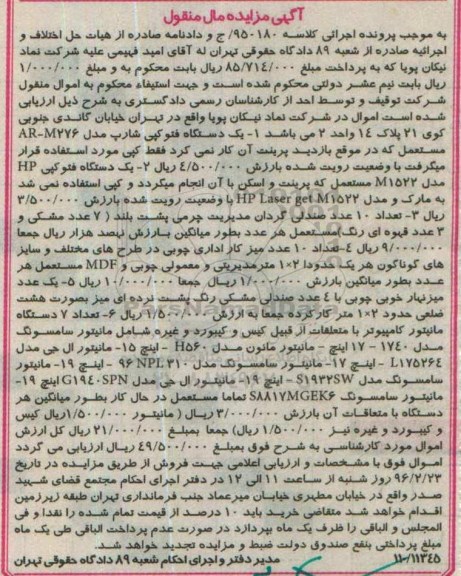 آگهی مزایده مال منقول
به موجب پرونده اجرائی کلاسه ۹۵۰۱۸۰/ ج و دادنامه صادره از هیات حل اختلاف و
اجرائیه صادره از شعبه ۸۹ دادگاه حقوقی تهران له آقای امید فهیمی علیه شرکت نماد
نیکان پویا که به پرداخت مبلغ ۸۵/۷۱۴/۰۰۰ ریال بابت محکوم به و مبلغ ۱/۰۰۰/۰۰۰
ریال بابت نیم عشر دولتی محکوم شده است و جهت استیفاء محکوم به اموال منقول
شرکت توقیف و توسط احد از کارشناسان رسمی دادگستری به شرح ذیل ارزیابی
شده است اموال در شرکت نماد نیکان پویا واقع در تهران خیابان گاندی جنوبی
کوی ۲۱ پلاک ۱۴ واحد ۲ می باشد ۱- یک دستگاه فتوکپی شارپ مدل AR-M۲۷۶
مستعمل که در موقع بازدید پرینت آن کار نمی کرد فقط کپی مورد استفاده قرار
میگرفت با وضعیت رویت شده بارزش ۴/۵۰۰/۰۰۰ ریال ۲- یک دستگاه فتوکپی HP
مدل M۱۵۲۲ مستعمل که پرینت و اسکن با آن انجام میگردد و کپی استفاده نمی شد
به مارک و مدل HP Laser get M۱۵۲۲ با وضعیت رویت شده بارزش ۳/۵۰۰/۰۰۰
ریال ۳- تعداد ۱۰ عدد صندلی گردان مدیریت چرمی پشت بلند ( ۷ عدد مشکی و
۳ عدد قهوه ای رنگ)مستعمل هر عدد بطور میانگین بارزش نهصد هزار ریال جمعا
۹/۰۰۰/۰۰۰ ریال ۴-تعداد ۱۰ عدد میز کار اداری چوبی در طرح های مختلف و سایز
های گوناگون هر یک حدودا ۲×۱ مترمدیریتی و معمولی چوبی و MDF مستعمل هر
عدد بطور میانگین بارزش ۱/۰۰۰/۰۰۰ ریال جمعا ۱۰/۰۰۰/۰۰۰ ریال ۵- یک عدد
میزنهار خوری چوبی با ۴ عدد صندلی مشکی رنگ پشت نرده ای میز بصورت هشت
ضلعی حدود ۲×۱ متر کارکرده جمعا به ارزش ۱/۵۰۰/۰۰۰ ریال ۶- تعداد ۷ دستگاه
مانیتور کامپیوتر با متعلقات از قبیل کیس و کیبورد و غیره شامل مانیتور سامسونگ
مدل ۱۷۴۰ - ۱۷ اینچ - مانیتور مانون مدل H۵۶۰ - اینچ ۱۵- مانیتور ال جی مدل
L۱۷۵۲۶۴ - اینچ ۱۷- مانیتور سامسونگ مدل ۹۶ NPL۳۱۰ - اینچ ۱۹- مانیتور
سامسونگ مدل S۱۹۳۲SW - اینچ ۱۹- مانیتور ال جی مدل G۱۹۴۰SPN اینچ ۱۹-
مانیتور سامسونگ S۸۸۱۷MGEK۶ تماما مستعمل در حال کار بطور میانگین هر
دستگاه با متعاقات آن بارزش ۳/۰۰۰/۰۰۰ ریال ( مانیتور ۱/۵۰۰/۰۰۰ریال کیس
و کیبورد و غیره نیز ۱/۵۰۰/۰۰۰ ریال) جمعا بمبلغ ۲۱/۰۰۰/۰۰۰ ریال کل ارزش
اموال مورد کارشناسی به شرح فوق بمبلغ ۴۹/۵۰۰/۰۰۰ ریال ارزیابی می گردد
اموال فوق با مشخصات و ارزیابی اعلامی جهت فروش از طریق مزایده در تاریخ
۹۶/۲/۲۳ روز شنبه از ساعت ۱۱ الی ۱۲ در دفتر اجرای احکام مجتمع قضای شهید
صدر واقع در خیابان مطهری خیابان میرعماد جنب فرمانداری تهران طبقه زیرزمین
اقدام خواهد شد متقاضی خرید باید ۱۰ درصد از قیمت تمام شده را نقدا و فی
المجلس و الباقی را ظرف یک ماه بپردازد در صورت عدم پرداخت الباقی طی یک ماه
مبلغ پرداختی بنفع صندوق دولت ضبط و مزایده تجدید خواهد شد.
۱۱۰/۱۱۳۴۵ مدیر دفتر و اجرای احکام شعبه ۸۹ دادگاه حقوقی تهران